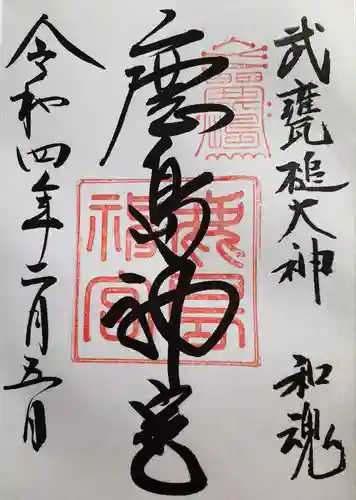 武甕槌大神 和魂
鹿島神宮
令和四年二月五日
鹿島神宮